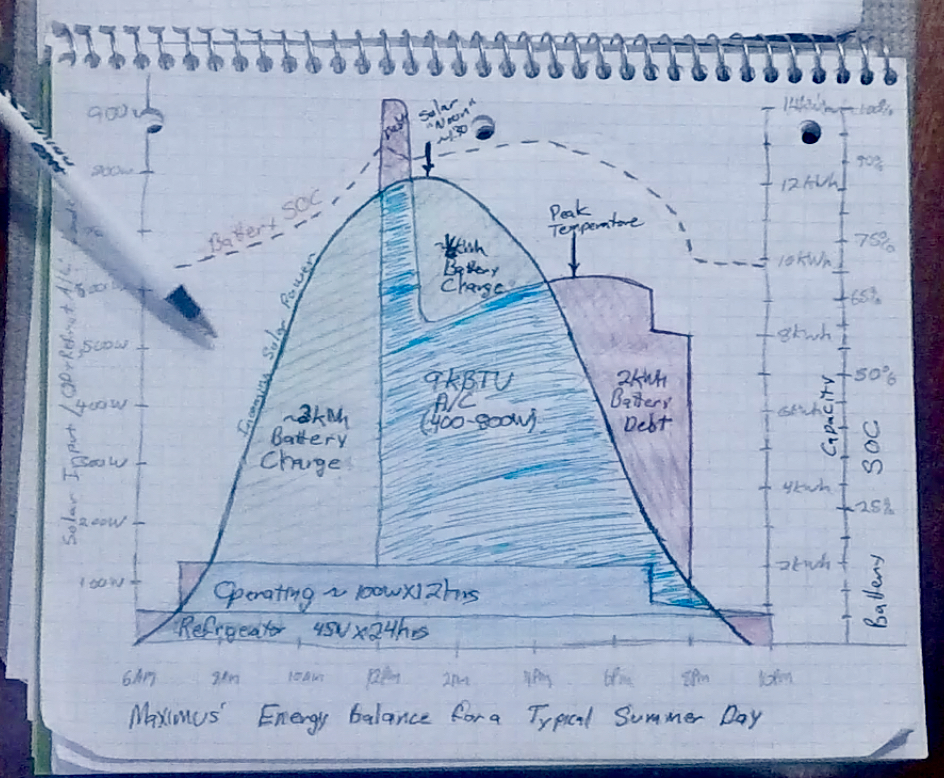 900W
Debt
Solar
"Noon"
~1:30
14kWh
100%
800W
90%
12kWh
Battery SOC
Peak
Temperature
75%
10kWh
Battery
Charge
65%
Incoming Solar Power
500W
8kWh
50%
9kBTU
A/C
(400-800W)
2kWh
Battery
Debt
400W
6kWh
Capacity
~3kWh
Battery
Charge
300W
4kWh
SOC
25%
200W
2kWh
100W
Operating ~ 100W X 12hrs
Battery
Refrigeator 45W X 24hrs
Solar Input /
6AM 8Am 10AM 12Pm 2PM 4Pm 6Pm 8Pm 10Pm
Maximus' Energy Balance for a Typical Summer Day